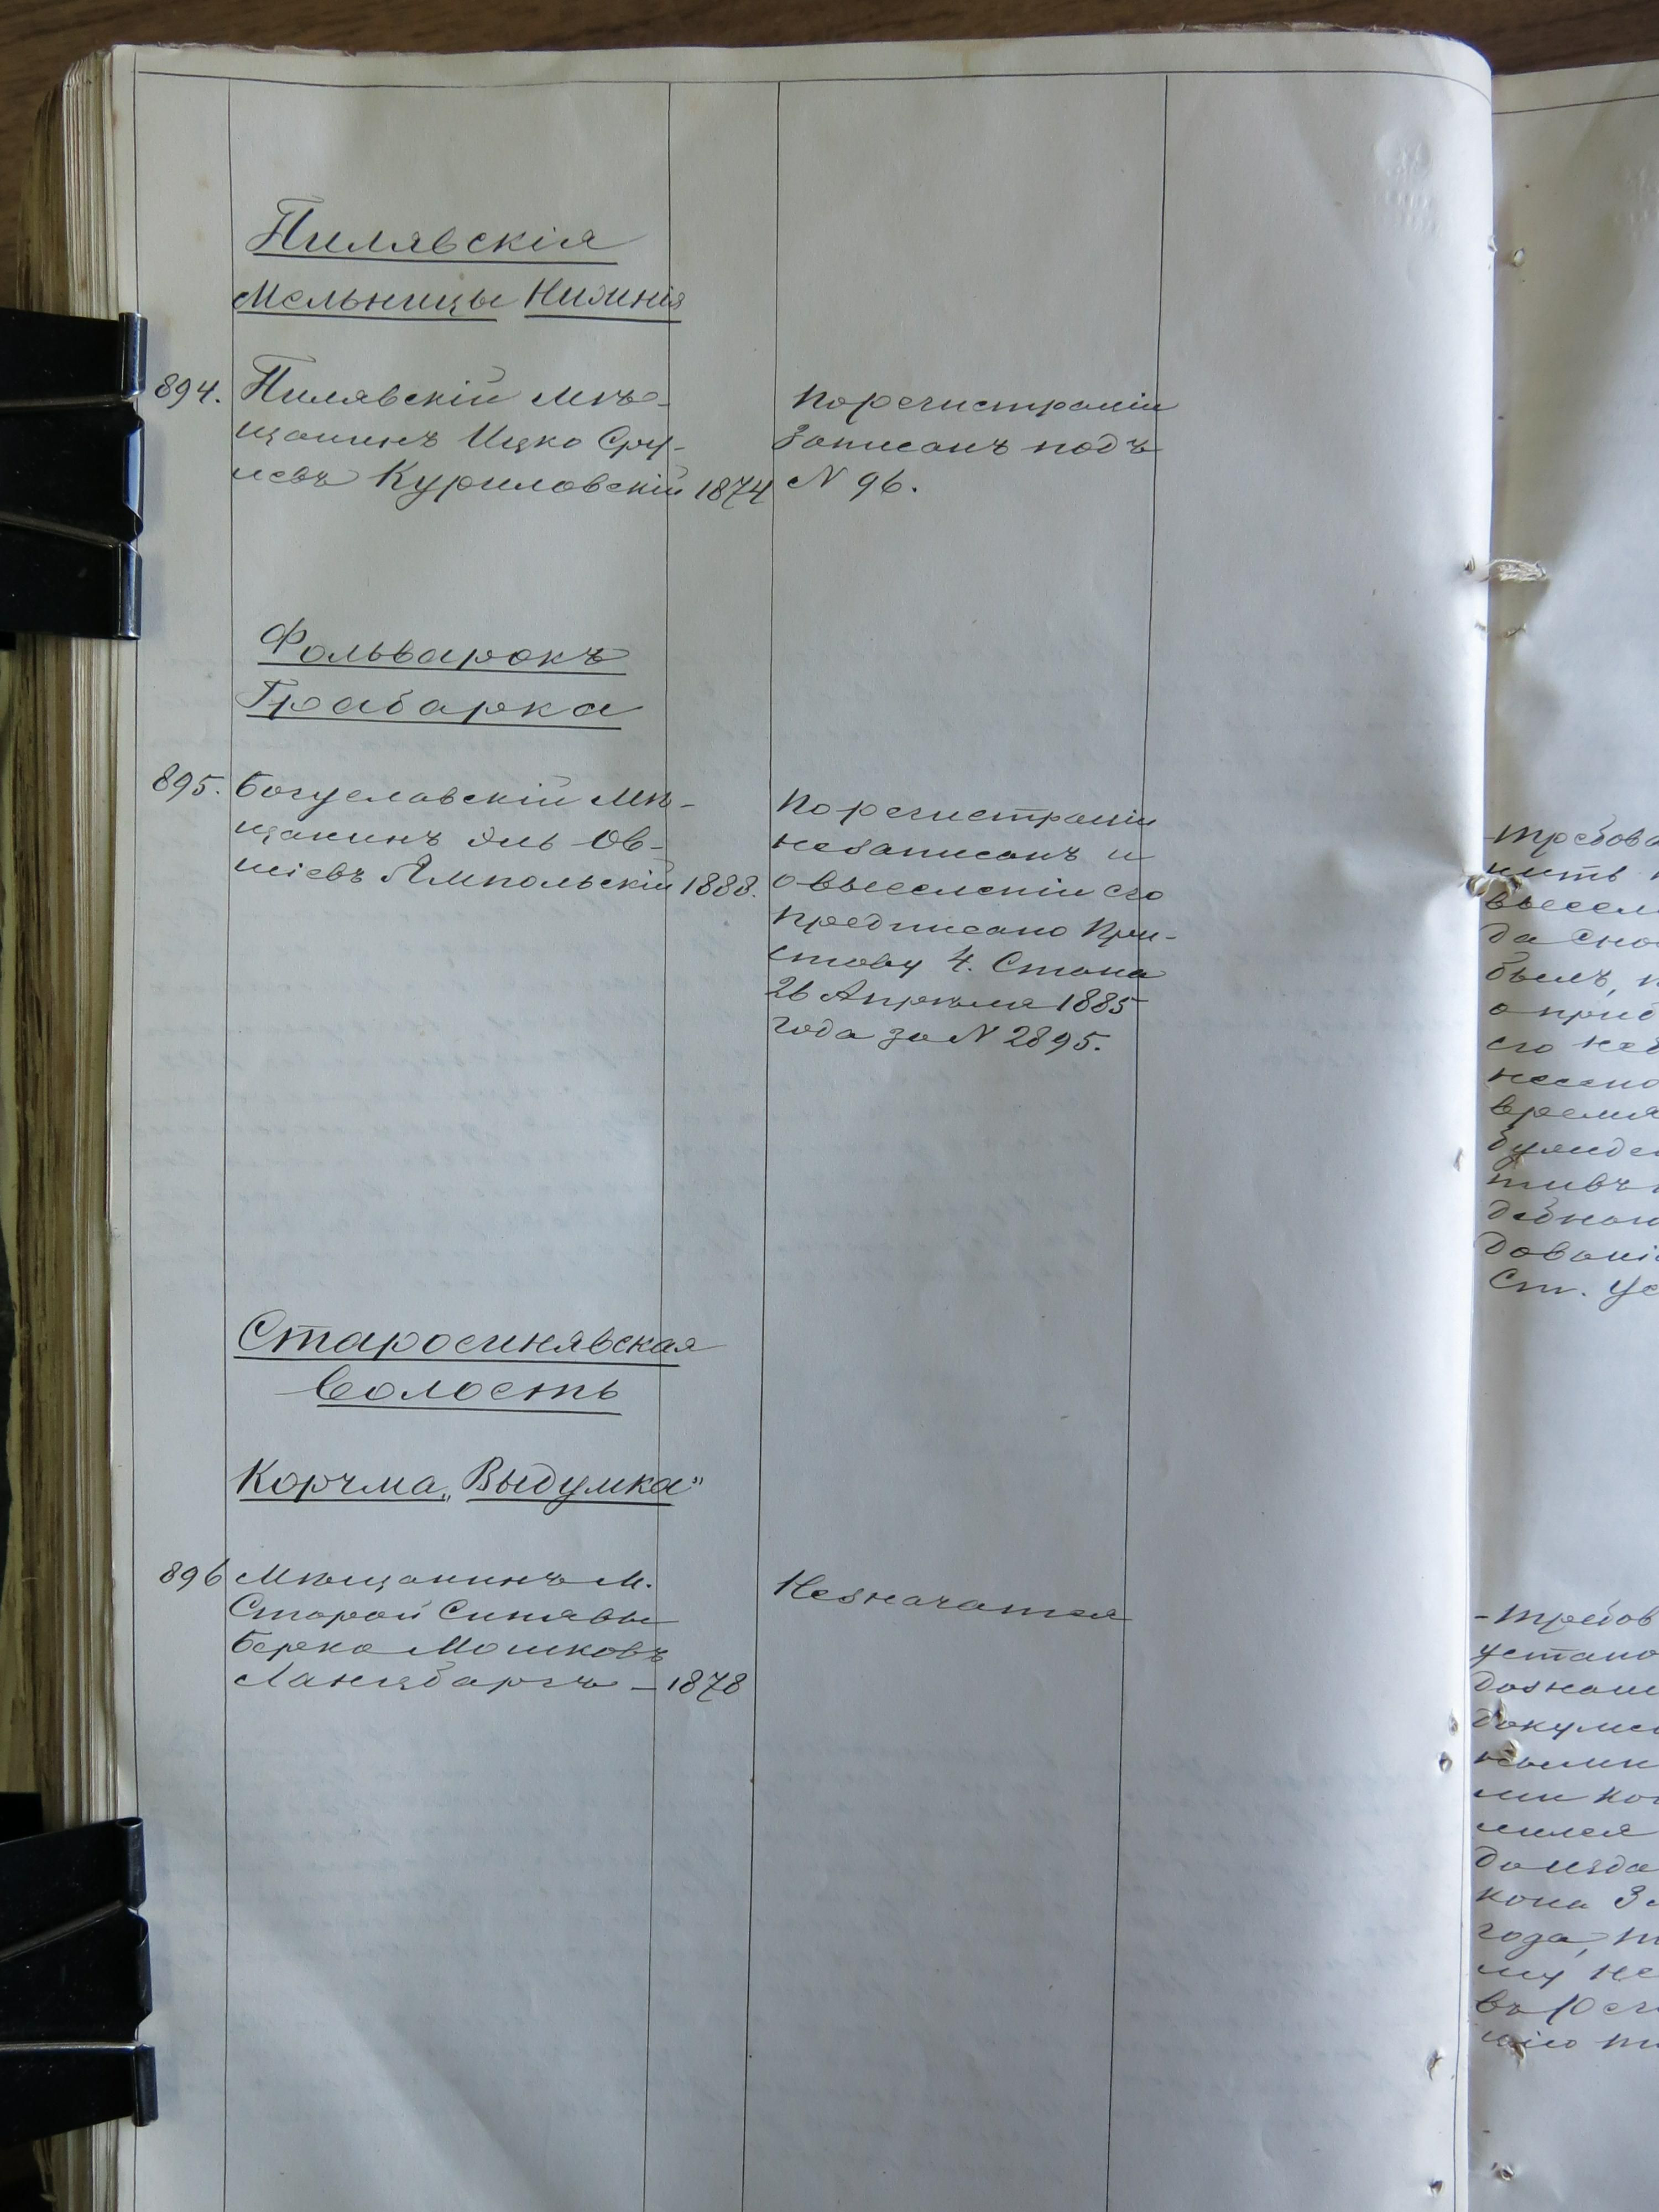 Пилявскія
Мельницы Нижнія
894. Пилявскій мѣ-
щанинъ Ицко Сру-
левъ Куриловскій 1874
По регистраціи
записанъ подъ
N 96.
Фольварокъ
Грабарка
895. Богуславскій мѣ-
щанинъ Эль Ов-
шіевъ Ямпольскій 1888.
По регистраціи
незаписанъ и
о выселеніи его
предписано При-
ставу 4. Стана
26 Апрѣля 1885
года за N 2895.
Старосинявская
Волость
Корчма „Выдумка"
896 Мѣщанинъ м.
Старой Синявы
Берко Мошковъ
1878
Незначится
требова
выселе
да сно
былъ, п
его
время
Ст. Ус
- требов
устано
дознані
докумен
кона 3
года,
му не